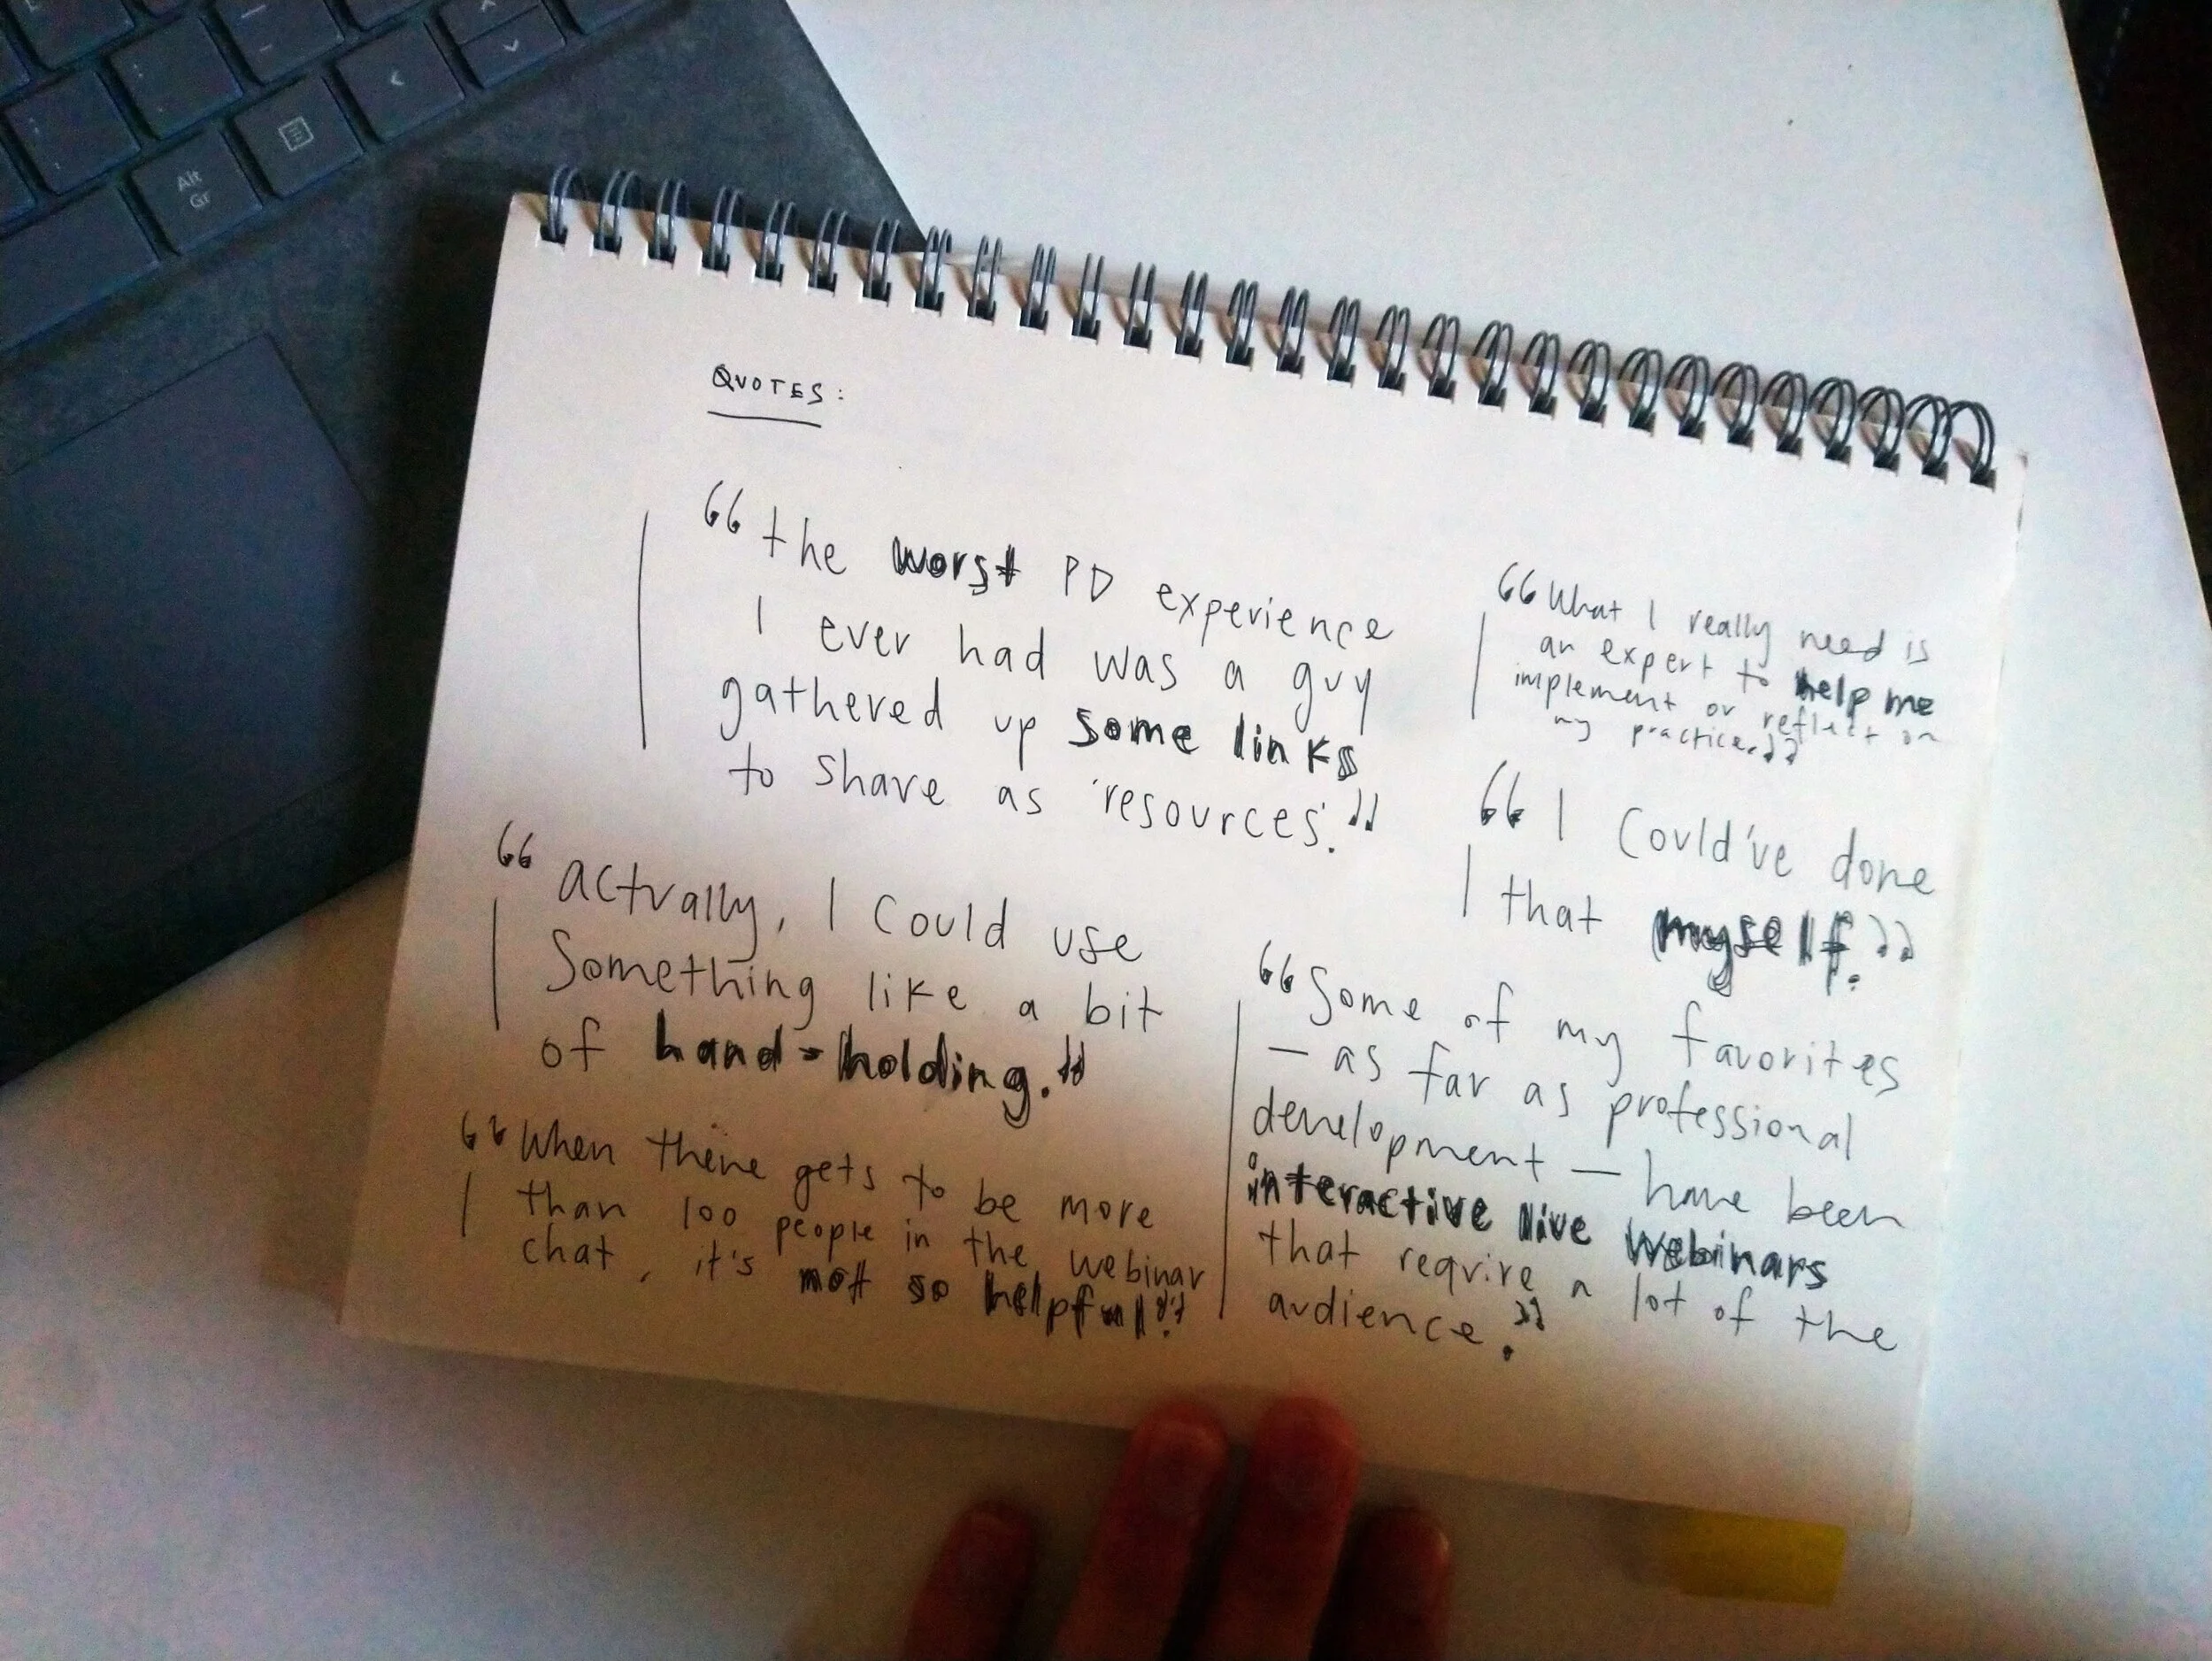 Alt
Gr
QUOTES:
“the worst PD experience
I ever had was a guy
gathered up some links
to share as 'resources'.”
“actually, I could use
something like a bit
of hand-holding.”
“When there gets to be more
than 100 people in the webinar
chat, it's not so helpful.”
“What I really need is
an expert to help me
implement or reflect on
my practice.”
“I could've done
that myself.”
“Some of my favorites
— as far as professional
development — have been
interactive live webinars
that require a lot of the
audience.”